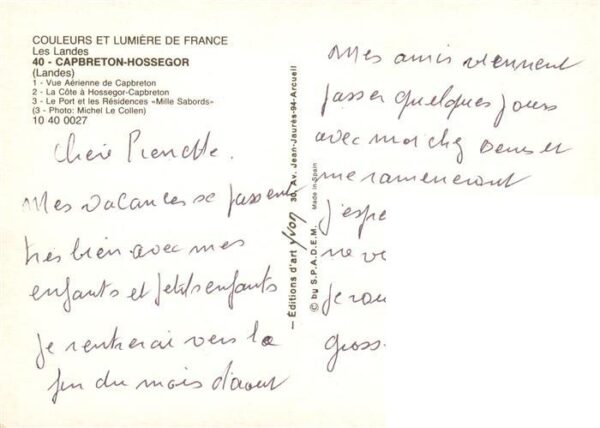 COULEURS ET LUMIÈRE DE FRANCE
Les Landes
40 - CAPBRETON-HOSSEGOR
(Landes)
1 - Vue Aérienne de Capbreton
2 - La Côte à Hossegor-Capbreton
3 - Le Port et les Résidences «Mille Sabords»
(3 - Photo: Michel Le Collen)
10 40 0027
Chère Pierrette.
Mes vacances se passent
très bien avec mes
enfants et petits enfants
je rentrerai vers la
fin du mois d'aout
— Éditions d'art yvon 30, Av. Jean-Jaurès-94-Arcueil
© by S.P.A.D.E.M. Made in Spain
Mes amis viennent
passer quelques jours
avec moi chez Denis et
me rameneront
j'espe
ne
je
gross